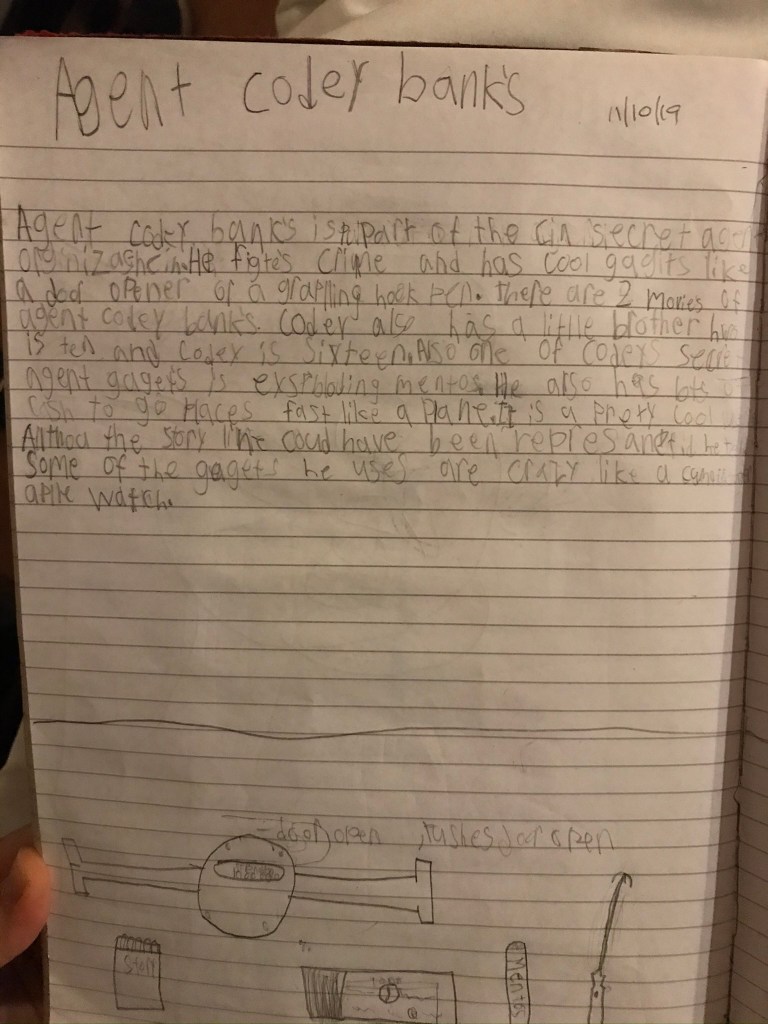 Agent codey bank's 11/10/19
Agent codey bank's is part of the cia secret
orginizashein. He figtes crime and has cool gagits like
a door opener or a grapling hook pen. there are 2 movies of
agent codey bank's. codey also has a little brother
is ten and codey is sixteen. Also one of codeys
agent gagets is exsploding mentos. He also has lots of
cash to go places fast like a plane. It is a prety cool
Althou the story line coud have been
Some of the gagets he uses are crazy like a
watch.
= door open , pushes door open
Story
1000
Mentos